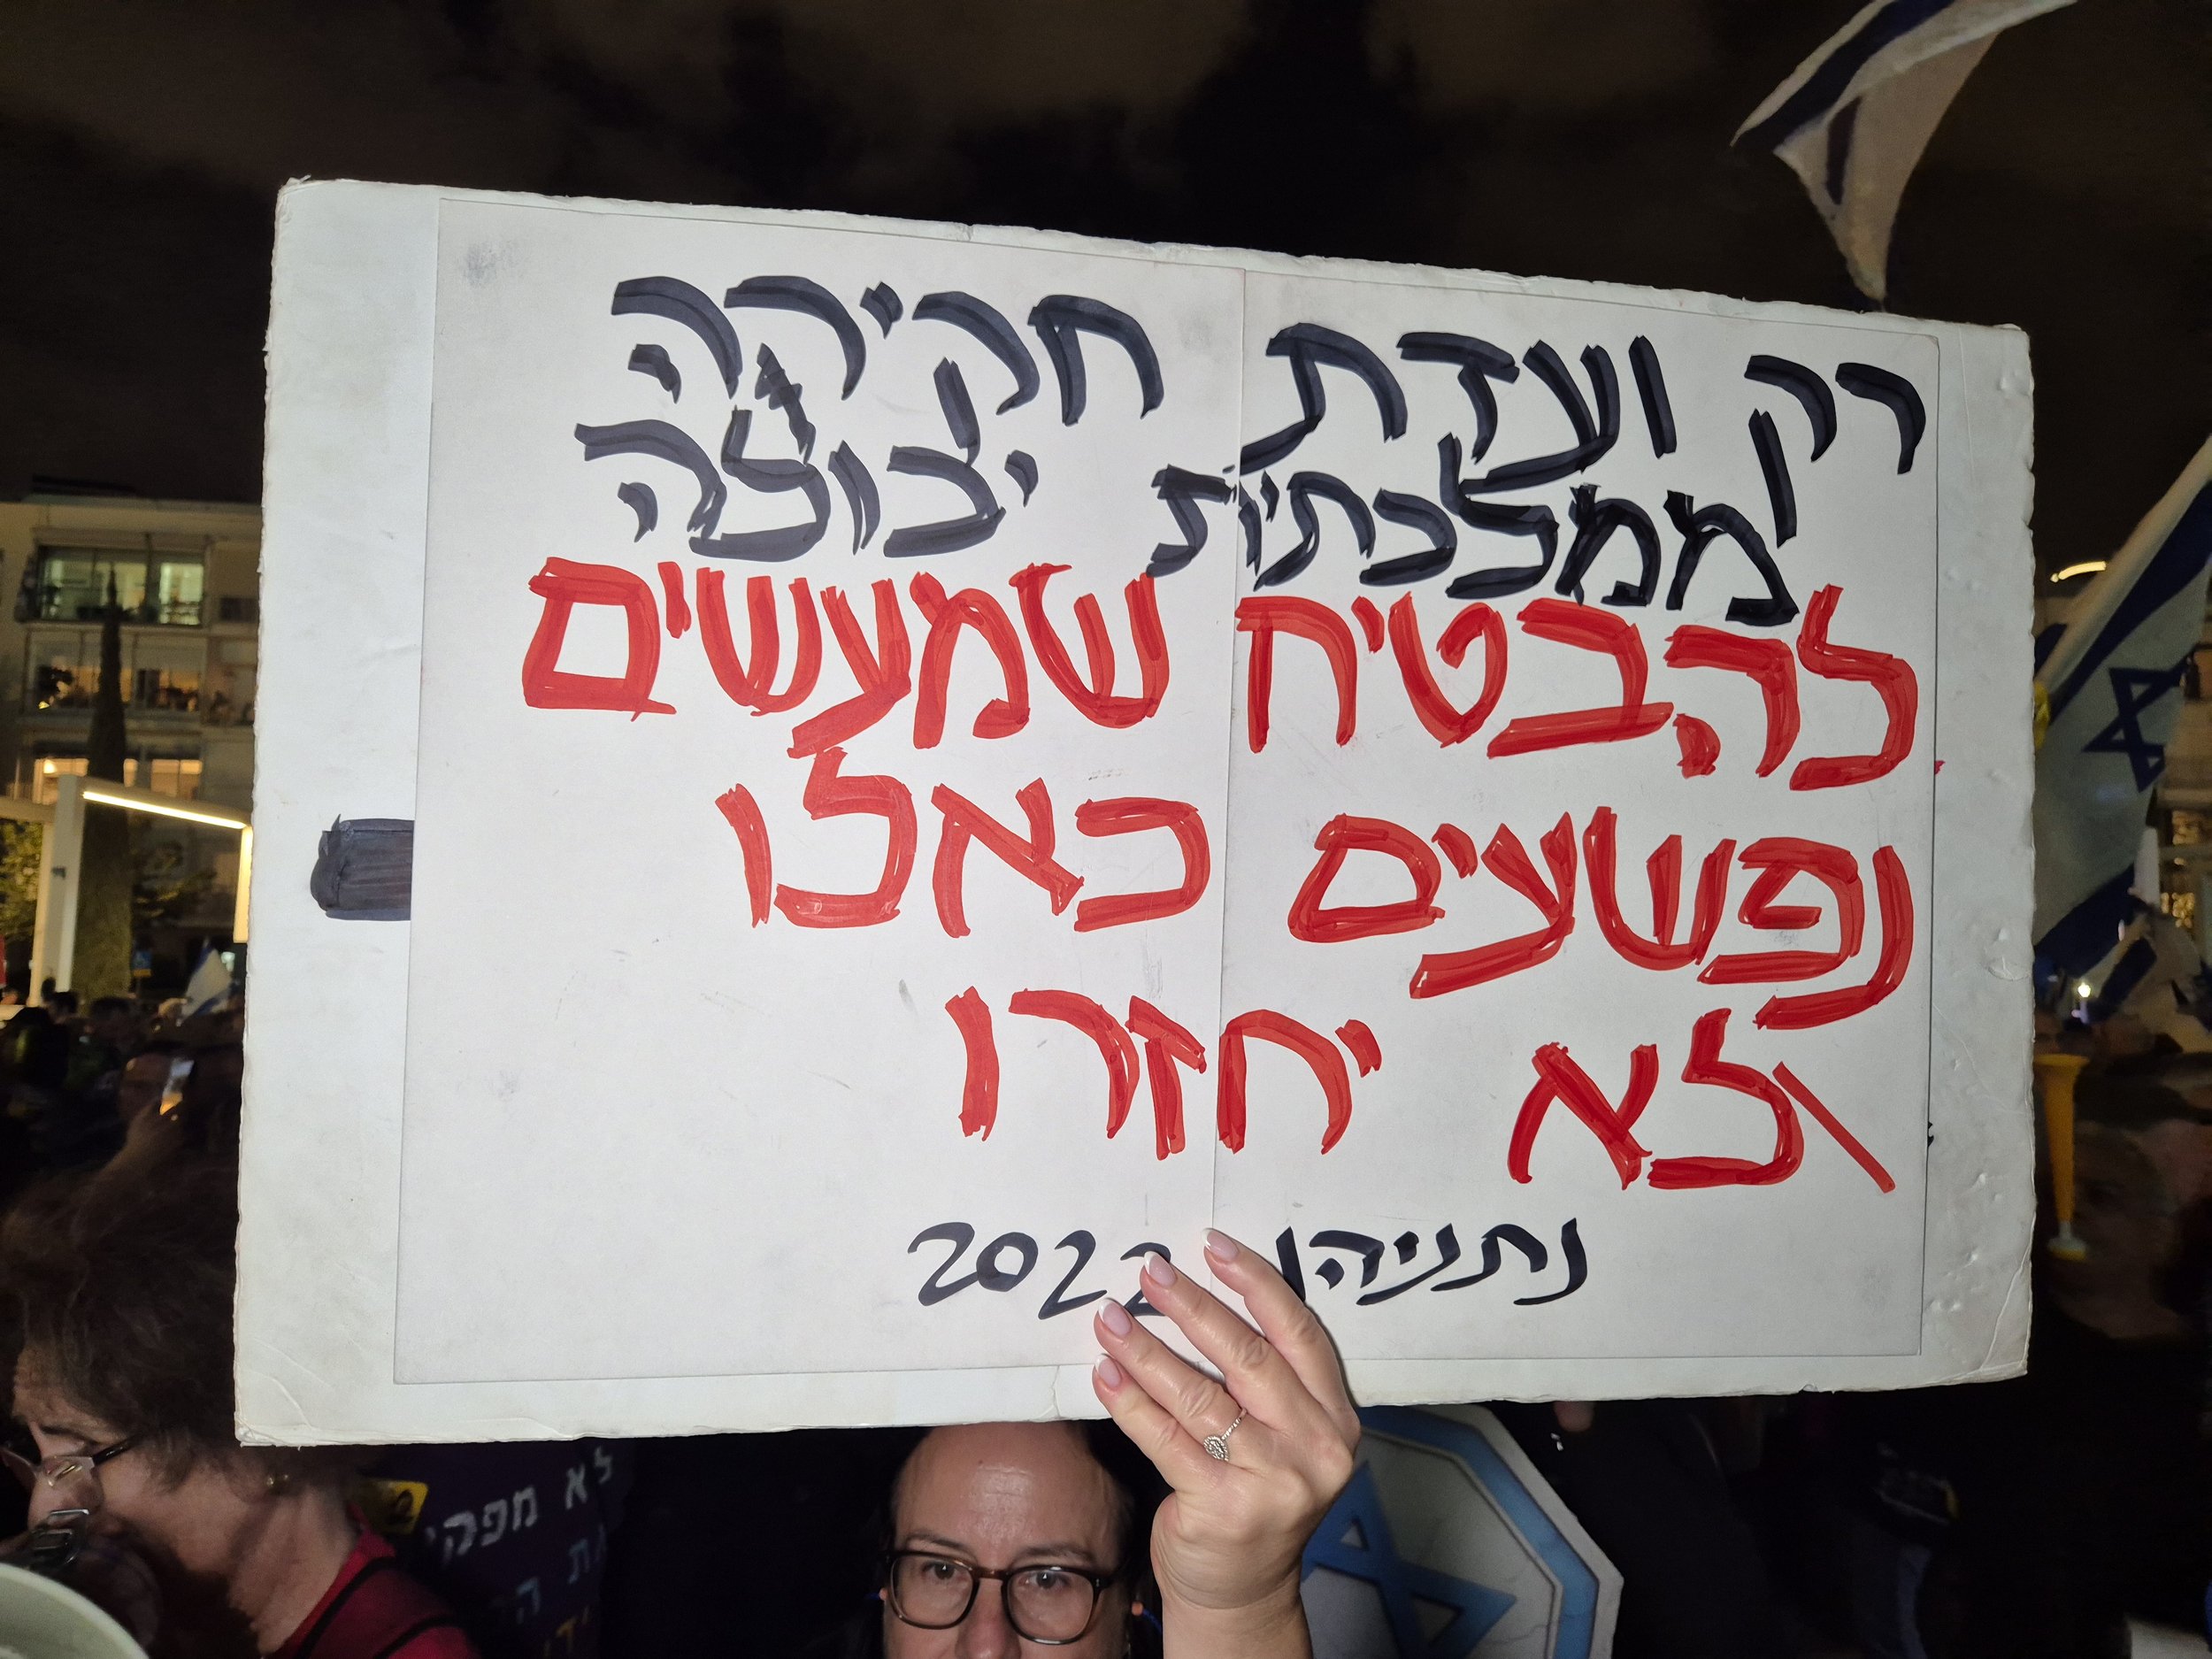 רק ועדת חקירה
ממלכתית יכולה
להבטיח שמעשים
נפשעים כאלו
ולא יחזרו
נתניהו 2022
לא מפקי
את